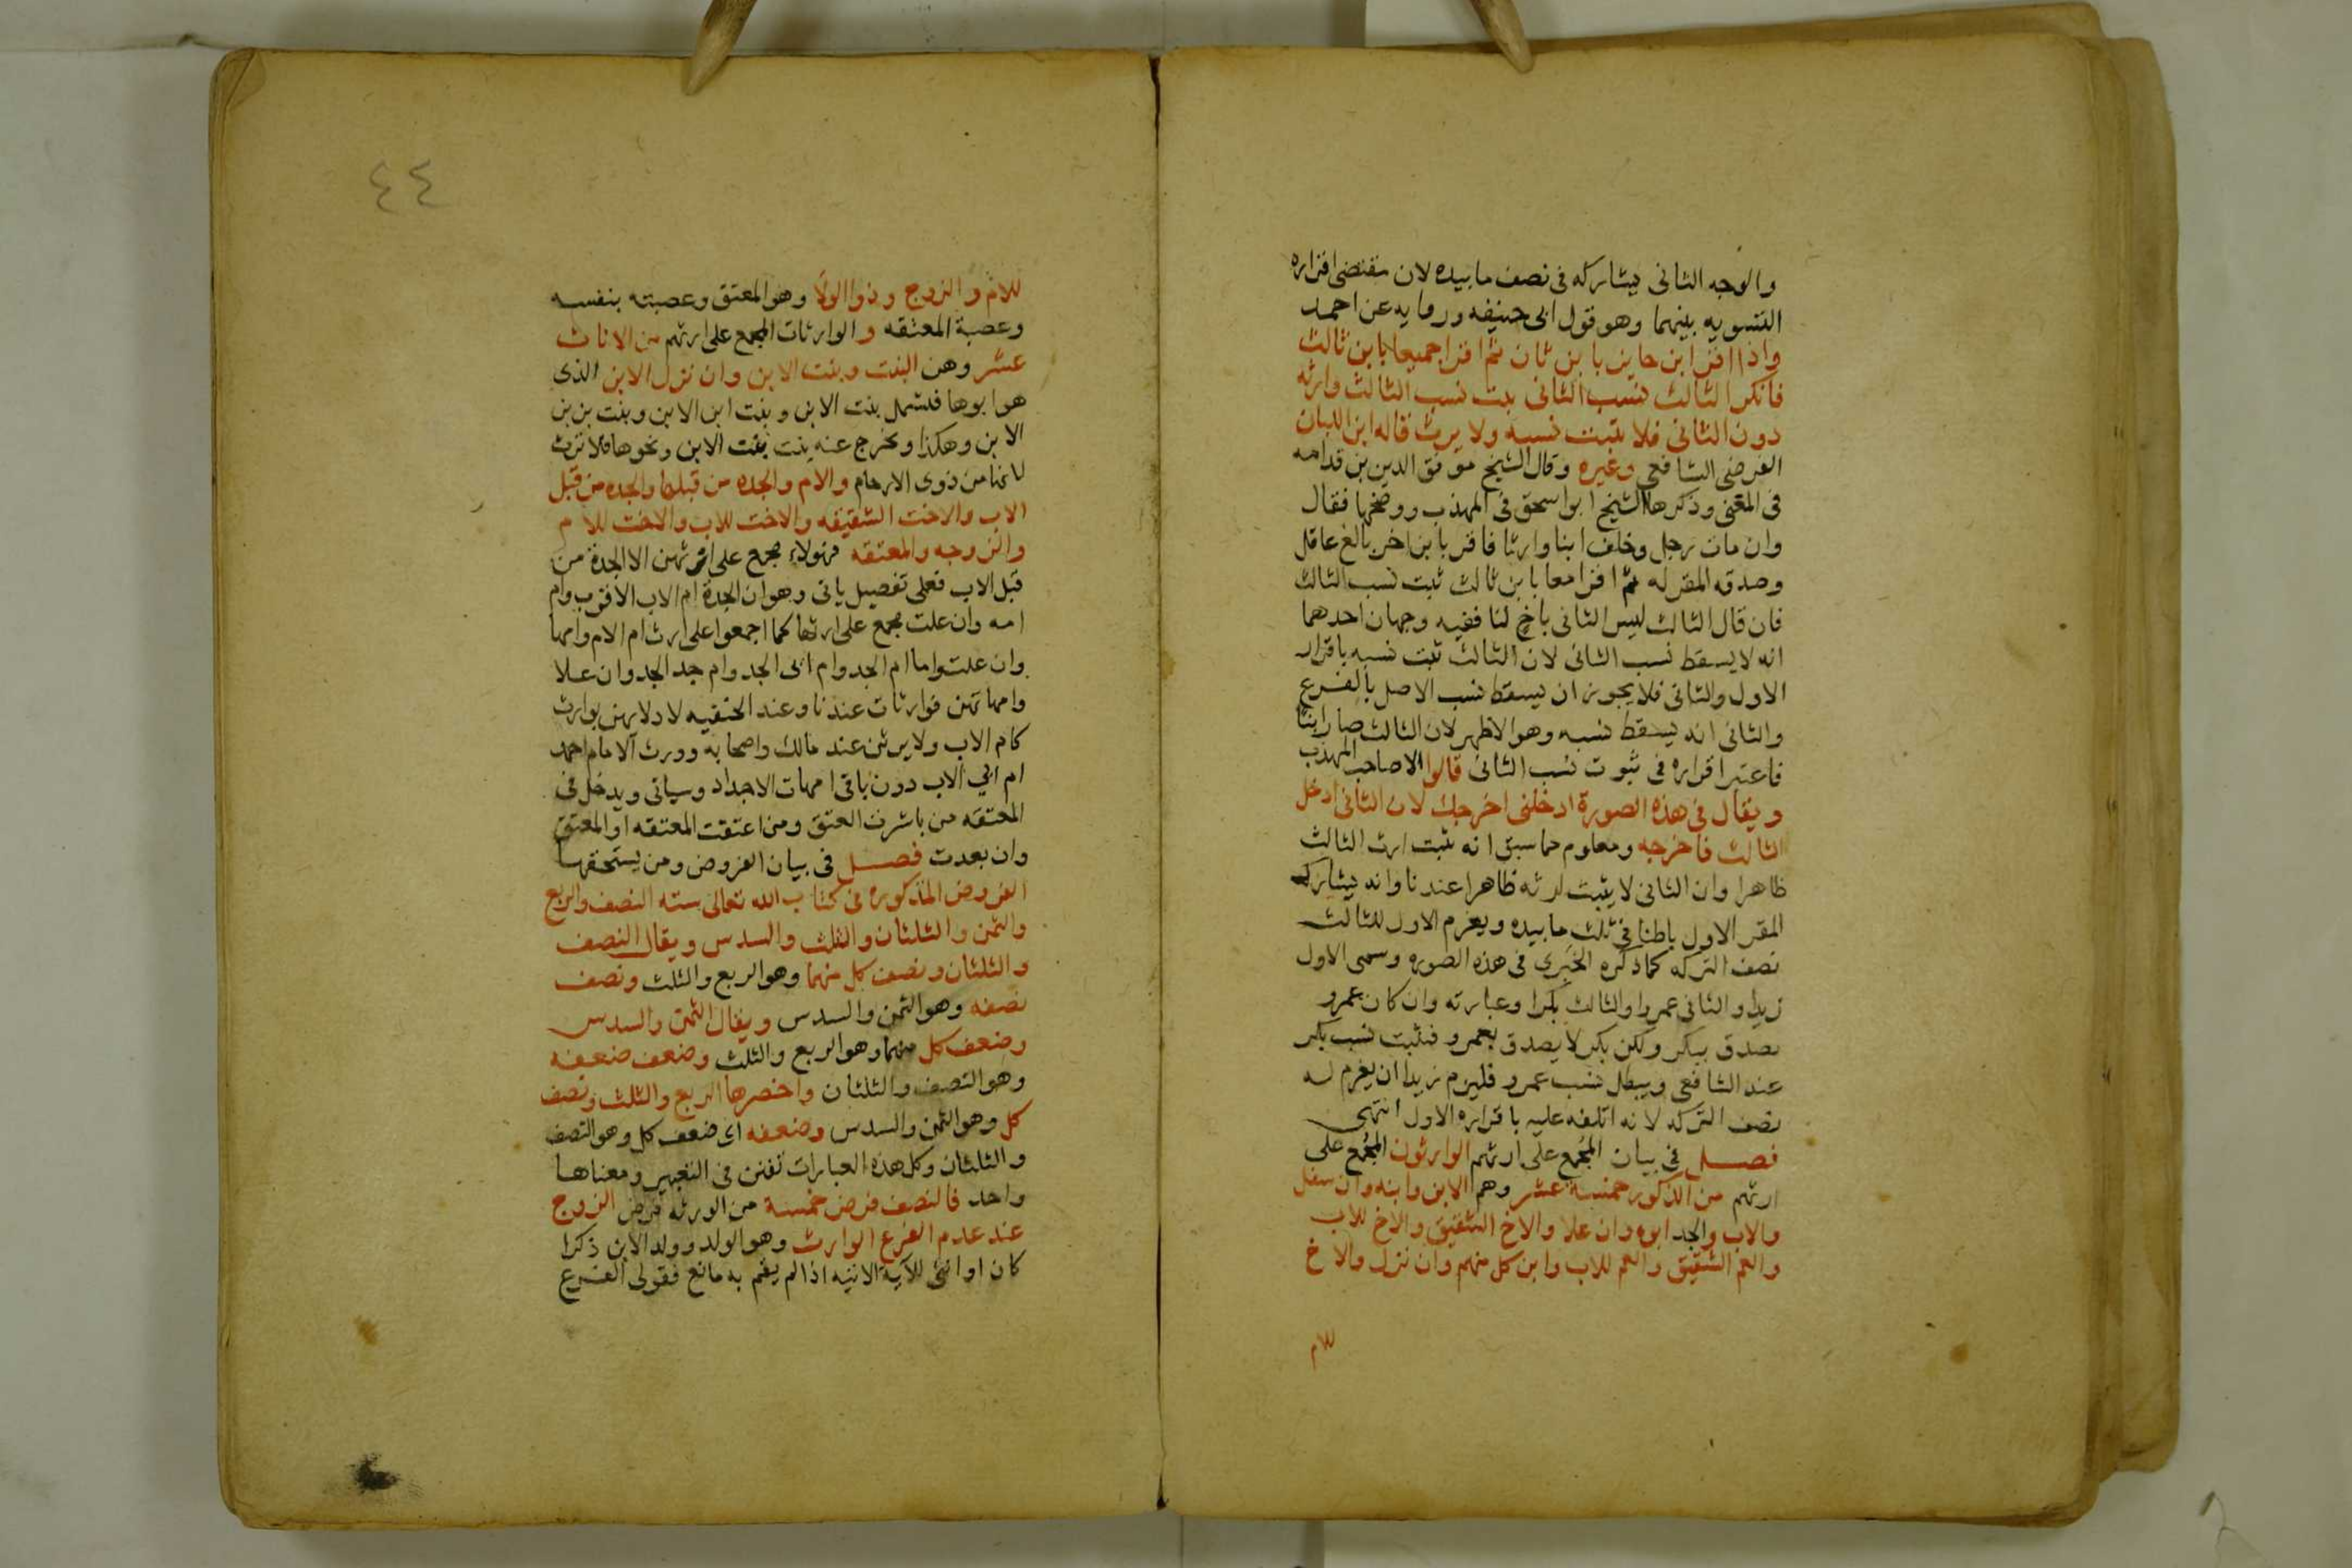 والوجه الثانى يشاركه فى نصف ما بيده لان مقتضى اقراره
التسويه بينهما وهو قول ابى حنيفه وروايه عن احمد
واذا اقر ابن حايز بابن ثان ثم اقرا جميعا بابن ثالث
فانكر الثالث نسب الثانى ثبت نسب الثالث وارثه
دون الثانى فلا يثبت نسبه ولا يرث قاله ابن اللبان
الفرضى الشافعى وغيره وقال الشيخ موفق الدين بن قدامه
فى المغنى وذكرها الشيخ ابو اسحق فى المهذب ووضحها فقال
وان مات رجل وخلف ابنا وارثا فاقر بابن اخر بالغ عاقل
وصدقه المقر له ثم اقرا معا بابن ثالث ثبت نسب الثالث
فان قال الثالث ليس الثانى باخ لنا ففيه وجهان احدهما
انه لا يسقط نسب الثانى لان الثالث ثبت نسبه باقرار
الاول والثانى فلا يجوز ان يسقط نسب الاصل بالفرع
والثانى انه يسقط نسبه وهو الاظهر لان الثالث صار ابنا
فاعتبر اقراره فى ثبوت نسب الثانى قالوا الا صاحب المهذب
ويقال فى هذه الصورة ادخلنى اخرجك لان الثانى ادخل
الثالث فاخرجه ومعلوم مما سبق انه يثبت ارث الثالث
ظاهرا وان الثانى لا يثبت ارثه ظاهرا عندنا وانه يشارك
المقر الاول باطنا فى ثلث ما بيده ويغرم الاول للثالث
نصف التركه كما ذكره الخبرى فى هذه الصوره وسمى الاول
زيدا والثانى عمروا والثالث بكرا وعبارته وان كان عمرو
يصدق ببكر ولكن بكر لا يصدق بعمرو فثبت نسب بكر
عند الشافعى ويبطل نسب عمرو فليزم زيدا ان يغرم له
نصف التركه لانه اتلفه عليه باقراره الاول انتهى
فصل فى بيان المجمع على ارثهم الوارثون المجمع على
ارثهم من الذكور خمسة عشر وهم الابن وابنه وان سفل
والاب والجد ابوه وان علا والاخ الشقيق والاخ للاب
والعم الشقيق والعم للاب وابن كل منهم وان نزل والاخ
للام
٤٤
للام والزوج وذوا الولا وهو المعتق وعصبته بنفسه
وعصبة المعتقه والوارثات المجمع على ارثهم من الاناث
عشر وهن البنت وبنت الابن وان نزل الابن الذى
هو ابوها فلشمل بنت الابن وبنت ابن الابن وبنت بن بن
الابن وهكذا وتخرج عنه بنت بنت الابن ونحوها فلا ترث
لانها من ذوى الارحام والام والجده من قبلها والجده من قبل
الاب والاخت الشقيقه والاخت للاب والاخت للام
والزوجه والمعتقه فهولاء مجمع على ارثهن الا الجدة من
قبل الاب فعلى تفصيل ياتى وهو ان الجدة ام الاب الاقرب وام
امه وان علت مجمع على ارثها كما اجمعوا على ارث ام الام وامها
وان علت واما ام الجد وام ابى الجد وام جد الجد وان علا
وامهاتهن فوارثات عندنا وعند الحنفيه لادلايهن بوارث
كام الاب ولا يرثن عند مالك واصحابه وورث الامام احمد
ام ابي الاب دون باقى امهات الاجداد وسياتى ويدخل فى
المعتقه من باشرت العتق ومن اعتقت المعتقه او المعتق
وان بعدت فصل فى بيان الفروض ومن يستحقها
الفروض المذكوره فى كتاب الله تعالى سته النصف والربع
والثمن والثلثان والثلث والسدس ويقال النصف
والثلثان ونصف كل منهما وهو الربع والثلث ونصف
نصفه وهو الثمن والسدس ويقال الثمن والسدس
وضعف كل منهما وهو الربع والثلث وضعف ضعفه
وهو النصف والثلثان واخصرها الربع والثلث ونصف
كل وهو الثمن والسدس وضعفه اى ضعف كل وهو النصف
والثلثان وكل هذه العبارات تفنن فى التعبير ومعناها
واحد فالنصف فرض خمسة من الورثه فرض الزوج
عند عدم الفرع الوارث وهو الولد وولد الابن ذكرا
كان او انثى للآية الاتيه اذا لم يقم به مانع فقولى الفرع